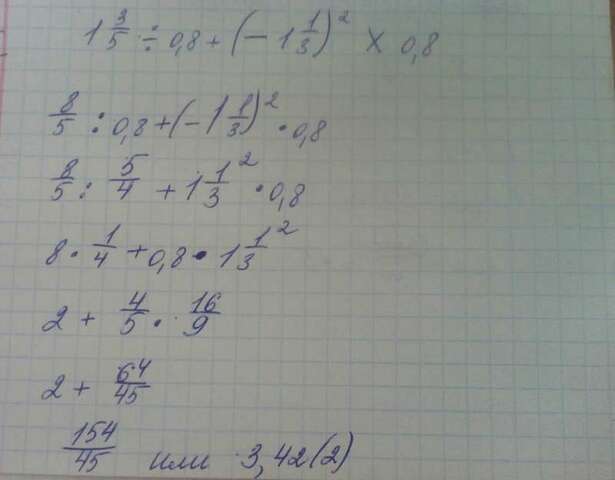 1 3/5 ÷ 0,8 + (-1 1/3)² × 0,8
8/5 : 0,8 + (-1 1/3)² · 0,8
8/5 : 5/4 + 1 1/3² · 0,8
8 · 1/4 + 0,8 · 1 1/3²
2 + 4/5 · 16/9
2 + 64/45
154/45 или 3,42(2)